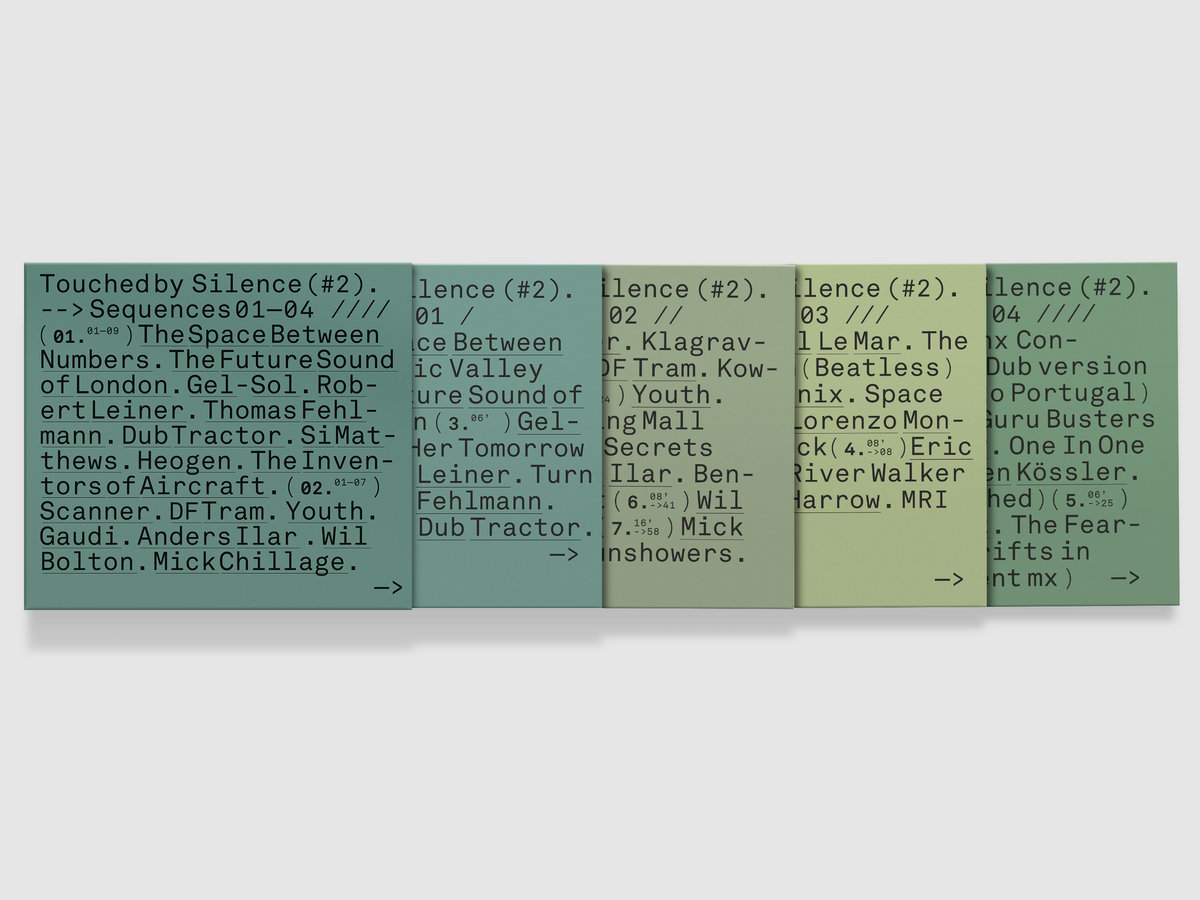 Touched by Silence (#2).
--> Sequences 01—04 ////
(01. 01—09) The Space Between
Numbers. The Future Sound
of London. Gel-Sol. Rob-
ert Leiner. Thomas Fehl-
mann. Dub Tractor. Si Mat-
thews. Heogen. The Inven-
tors of Aircraft. (02. 01—07)
Scanner. DF Tram. Youth.
Gaudi. Anders Ilar. Wil
Bolton. Mick Chillage.
—>
ilence (#2).
01 /
ace Between
ic Valley
ture Sound of
n (3. 06' ) Gel-
Her Tomorrow
Leiner. Turn
Fehlmann.
Dub Tractor.
—>
ilence (#2).
02 //
r. Klagrav-
DF Tram. Kow-
) Youth.
ng Mall
Secrets
Ilar. Ben-
(6. 08' ->41) Wil
7. 16' ->58) Mick
unshowers.
ilence (#2).
03 ///
l Le Mar. The
(Beatless)
nix. Space
Lorenzo Mon-
ck (4. 08' ->08) Eric
River Walker
Harrow. MRI
—>
ilence (#2).
04 ////
nx Con-
Dub version
o Portugal)
Guru Busters
. One In One
en Kössler.
hed) (5. 06' ->25)
. The Fear-
rifts in
ent mx) —>